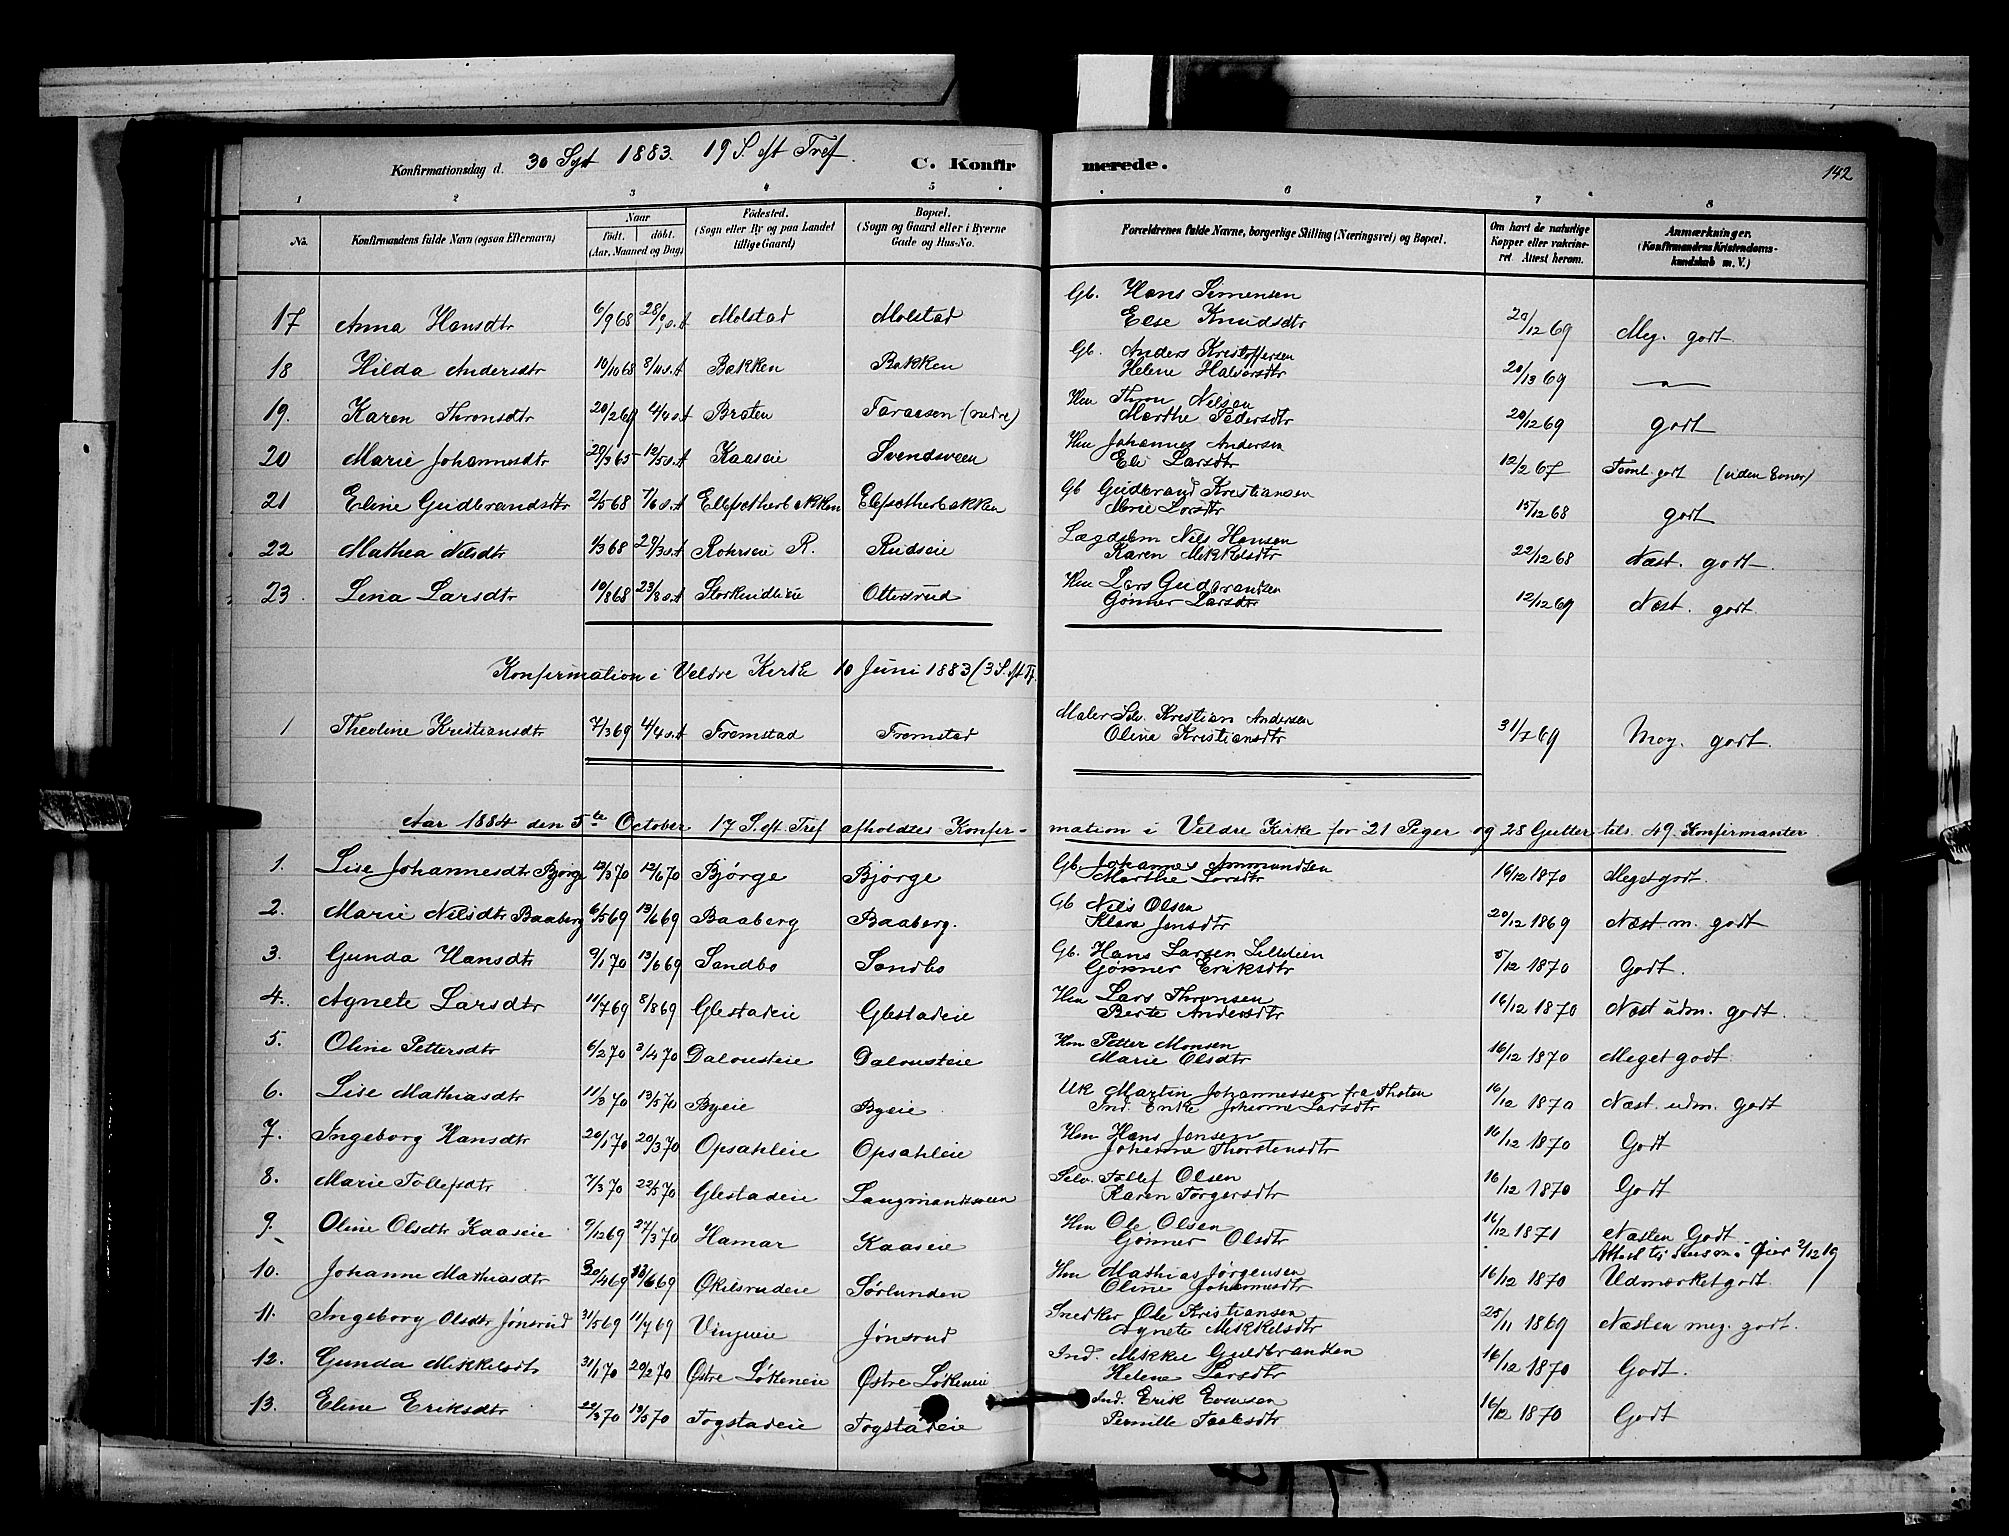 Konfirmationsdag d. 30 Sept 1883. 19 S. eft Tref. C. Konfirmerede. 142
1 2 3 4 5 6 7 8
No. Konfirmandens fulde Navn (ogsaa Efternavn) Naar født. døbt. (Aar, Maaned og Dag) Fødested. (Sogn eller By og paa Landet tillige Gaard) Bopæl. (Sogn og Gaard eller i Byerne Gade og Hus-No. Forældrenes fulde Navne, borgerlige Stilling (Næringsvei) og Bopæl. Om havt de naturlige Kopper eller vakcineret. Attest herom. Anmærkninger. (Konfirmandens Kristendomskundskab m. V.)
17 Anna Hansdtr 6/9 68 Molstad Molstad Gb. Hans Simensen Else Knudsdtr 20/12 69 Meg. godt
18 Hilda Andersdtr 10/10 68 8/11 s.A Bakken Bakken Gb. Anders Kristoffersen Helene Halvorsdtr 20/13 69 — " —
19. Karen Thronsdtr 20/2 69 4/4 s.A Braten Taraasen (nedre) Hm Thron Nelsen Marthe Pedersdtr 20/12 69 godt
20 Marie Johannesdtr 20/3 65 12/5 s.A Kaaseie Svendsveen Hm Johannes Andersen Eli Larsdtr 12/2 67 Teml. godt (uden Evner)
21 Eline Gudbrandsdtr 2/5 68 7/6 s.A Ellefsætherbakken Elefsætherbakken Gb Gudbrand Kristiansen Marie Larsdtr 15/12 68 godt
22 Mathea Nilsdtr 1/3 68 29/3 s.A Rohrseie R. Rudseie Lægdslm Nils Hansen Karen Mikkelsdtr 22/12 68 Næst. godt
23. Lena Larsdtr 10/8 68 23/8 s.A Ottersrud Hm Lars Gudbrandsen Gønner Larsdtr 12/12 69 Næst. godt
Konfirmation i Veldre Kirke 10 Juni 1883 (3 S. eft Tr.
1 Theoline Kristiansdtr 7/3 69 4/4 s.A Fremstad Fremstad Maler Selv. Kristian Andersen Olina Kristiansdtr 31/7 69 Meg. godt.
Aar 1884 den 5te October 17 S. eft Tref afholdtes Konfirmation i Veldre Kirke for 21 Piger og 28 Gutter tils. 49 Konfirmanter
1. Lise Johannesdtr Bjørge 12/3 70 12/6 70 Bjørge Bjørge Gb. Johannes Ammundsen Marthe Larsdtr 16/12 1870 Meget godt.
2. Marie Nilsdtr Baaberg 6/5 69 13/6 69 Baaberg Baaberg. Gb Nils Olsen Klara Jensdtr 20/12 1869 Næst m. godt
3. Gunda Hansdtr 9/1 70 13/6 69 Sandbo Sandbo Gb. Hans Larsen Lilleeien Gønner Eriksdtr 5/12 1870 Godt.
4. Agnete Larsdtr 11/7 69 8/8 69 Glestadeie Glestadeie Hm Lars Thronsen Berte Andersdtr 16/12 1870 Næst udm. godt.
5. Oline Pettersdtr 6/2 70 3/4 70 Dalousteie Dalousteie Hm Petter Monsen Marie Olsdtr 16/12 1870 Meget godt.
6. Lise Mathiasdtr 11/3 70 13/5 70 Byeie Byeie Uk Martin Johannessen fra Thoten Ind. Enke Johanne Larsdtr 16/12 1870 Næst. udm. godt
7. Ingeborg Hansdtr 20/1 70 20/3 70 Opsahleie Opsahleie Hm Hans Jensen Johanne Thorstensdtr 16/12 1870 Godt
8. Marie Tollefsdtr 7/3 70 22/5 70 Glestadeie Langmandsveen Selv. Tollef Olsen Karen Torgersdtr 16/12 1870 Godt
9. Oline Olsdtr Kaaseie 9/12 69 27/3 70 Hamar Kaaseie Hm Ole Olsen Gønner Olsdtr 16/12 1871 Næsten Godt.
10. Johanne Mathiasdtr 30/4 69 13/6 69 Økilsrudeie Sørlunden Hm Mathias Jørgensen Oline Johannesdtr 16/12 1870 Udmærket godt.
11. Ingeborg Olsdtr Jønsrud 31/5 69 11/7 69 Vinjueie Jønsrud Snedker Ole Kristiansen Agnete Mikkelsdtr 25/11 1869 Næsten meg. godt.
12. Gunda Mikkelsdtr 31/1 70 20/2 70 Østre Løkeneie Østre Løkeneie Ind. Mikkel Guldbrandsen Helene Larsdtr 16/12 1870 Godt.
13. Eline Eriksdtr 22/3 70 19/5 70 Togstadeie Togstadeie Ind. Erik Evensen Pernille Paulsdtr 16/12 1870 Godt